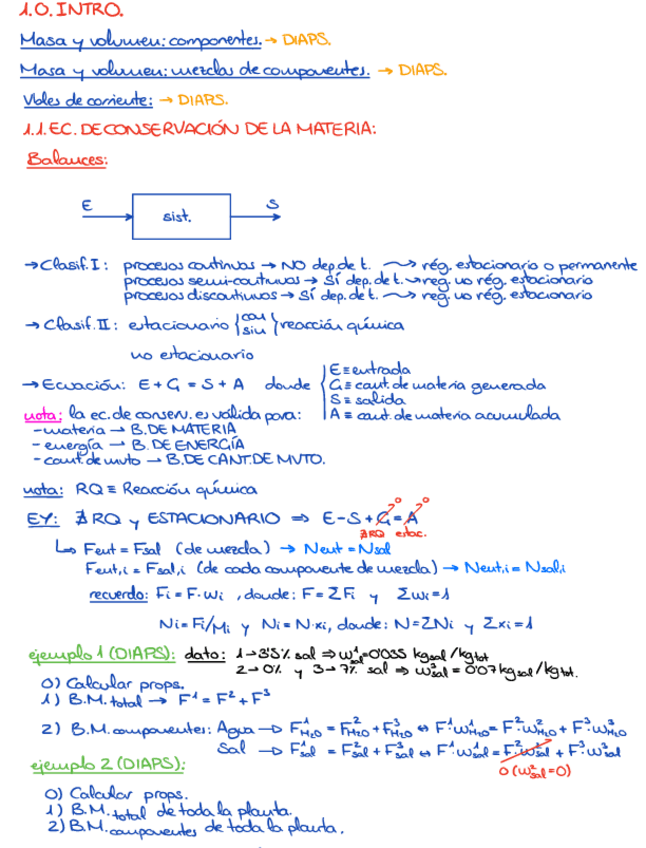 1.0. INTRO.
Masa y volumen: componentes. → DIAPS.
Masa y volumen: mezclas de componentes. → DIAPS.
Vbles de corriente: → DIAPS.
1.1. EC. DE CONSERVACIÓN DE LA MATERIA:
Balances:
E sist. S
→ Clasif. I: procesos continuos → NO dep. de t. ⟿ rég. estacionario o permanente
procesos semi-continuos → SÍ dep. de t. ⟿ reg. no rég. estacionario
procesos discontinuos → SÍ dep. de t. ⟿ reg. no rég. estacionario
→ Clasif. II: estacionario {con sin} reacción química
no estacionario
→ Ecuación: E + G = S + A donde
E ≡ entrada
G ≡ cant. de materia generada
S ≡ salida
A ≡ cant. de materia acumulada
nota: la ec. de conserv. es válida para:
- materia → B. DE MATERIA
- energía → B. DE ENERGÍA
- cant. de mvto → B. DE CANT. DE MVTO.
nota: RQ ≡ Reacción química
EY: ∄ RQ y ESTACIONARIO ⇒ E - S + G = A
0 0
∄RQ estac.
↳ Fent = Fsal (de mezcla) → Nent = Nsal
Fent,i = Fsal,i (de cada componente de mezcla) → Nent,i = Nsal,i
recuerdo: Fi = F · wi , donde: F = ΣFi y Σwi = 1
Ni = Fi/Mi y Ni = N · xi, donde: N = ΣNi y Σxi = 1
ejemplo 1 (DIAPS): dato: 1 → 3'5% sal ⇒ w¹sal = 0'035 kg sal/kg tot
2 → 0% y 3 → 7% sal ⇒ w³sal = 0'07 kg sal/kg tot.
0) Calcular props.
1) B.M. total → F¹ = F² + F³
2) B.M. componentes: Agua → F¹H₂O = F²H₂O + F³H₂O ⇔ F¹·w¹H₂O = F²·w²H₂O + F³·w³H₂O
Sal → F¹sal = F²sal + F³sal ⇔ F¹·w¹sal = F²·w²sal + F³·w³sal
0 (w²sal = 0)
ejemplo 2 (DIAPS):
0) Calcular props.
1) B.M. total de toda la planta.
2) B.M. componentes de toda la planta.